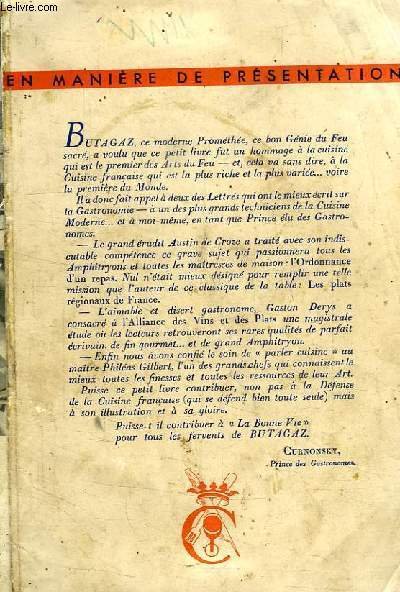 www.le-livre.com
EN MANIÈRE DE PRÉSENTATION
BUTAGAZ, ce moderne Prométhée, ce bon Génie du Feu
sacré, a voulu que ce petit livre fût un hommage à la cuisine
qui est le premier des Arts du Feu — et, cela va sans dire, à la
Cuisine française qui est la plus riche et la plus variée... voire
la première du Monde.
Il a donc fait appel à deux des Lettrés qui ont le mieux écrit sur
la Gastronomie — à un des plus grands techniciens de la Cuisine
Moderne... et à moi-même, en tant que Prince élu des Gastro-
nomes.
— Le grand érudit Austin de Croze a traité avec son indis-
cutable compétence ce grave sujet qui passionnera tous les
Amphitryons et toutes les maîtresses de maison : l'Ordonnance
d'un repas. Nul n'était mieux désigné pour remplir une telle
mission que l'auteur de ce classique de la table : Les plats
régionaux de France.
— L'aimable et disert gastronome, Gaston Derys a
consacré à l'Alliance des Vins et des Plats une magistrale
étude où les lecteurs retrouveront ses rares qualités de parfait
écrivain, de fin gourmet... et de grand Amphitryon.
— Enfin nous avons confié le soin de « parler cuisine » au
maître Philéas Gilbert, l'un des grands chefs qui connaissent le
mieux toutes les finesses et toutes les ressources de leur Art.
Puisse ce petit livre contribuer, non pas à la Défense
de la Cuisine française (qui se défend bien toute seule) mais
à son illustration et à sa gloire.
Puisse-t-il contribuer à « La Bonne Vie »
pour tous les fervents de BUTAGAZ.
CURNONSKY,
Prince des Gastronomes.